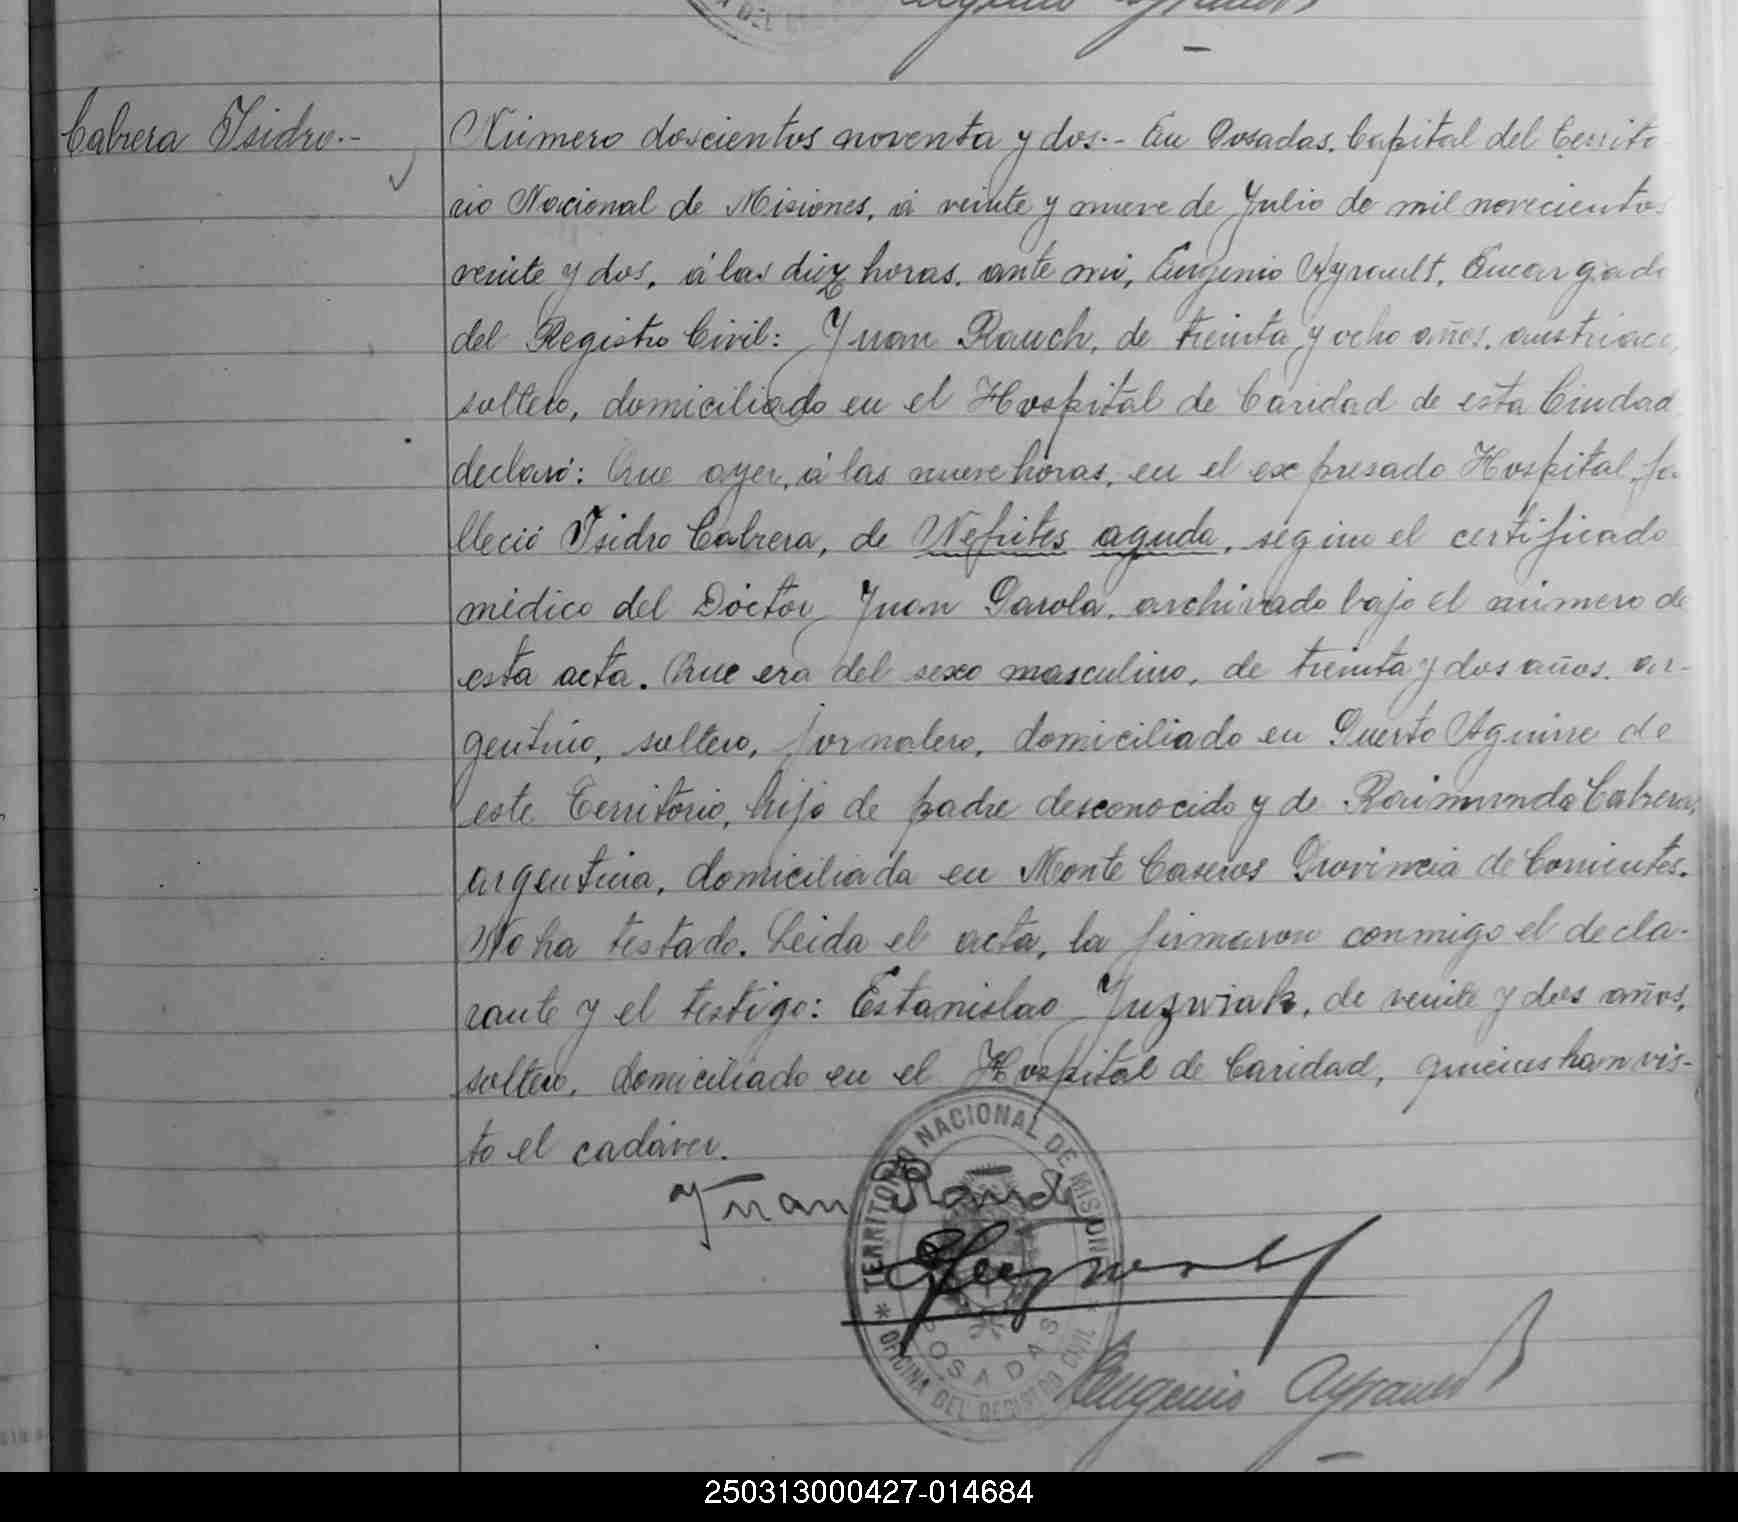 Cabrera Isidro.-
Número doscientos noventa y dos.- En Posadas, Capital del Territo-
rio Nacional de Misiones, á veinte y nueve de Julio de mil novecientos
veinte y dos, á las diez horas, ante mi, Eugenio Ayrault, Encargado
del Registro Civil: Juan Rauch, de treinta y ocho años, austriaco,
soltero, domiciliado en el Hospital de Caridad de esta Ciudad
declaró: Que ayer, á las nueve horas, en el expresado Hospital, fa-
lleció Isidro Cabrera, de Nefrites aguda, según el certificado
médico del Dóctor Juan Garola, archivado bajo el número de
esta acta. Que era del sexo masculino, de treinta y dos años, ar-
gentino, soltero, jornalero, domiciliado en Puerto Aguirre de
este Territorio, hijo de padre desconocido y de Raimunda Cabrera,
argentina, domiciliada en Monte Caseros Provincia de Corrientes.
No ha testado. Leida el acta, la firmaron conmigo el decla-
rante y el testigo: Estanislao Juzwiak, de veinte y dos años,
soltero, domiciliado en el Hospital de Caridad, quienes han vis-
to el cadáver.
TERRITORIO NACIONAL DE MISIONES
Juan Rauch
POSADAS
* OFICINA DEL REGISTRO CIVIL *
Eugenio Ayrault
250313000427-014684